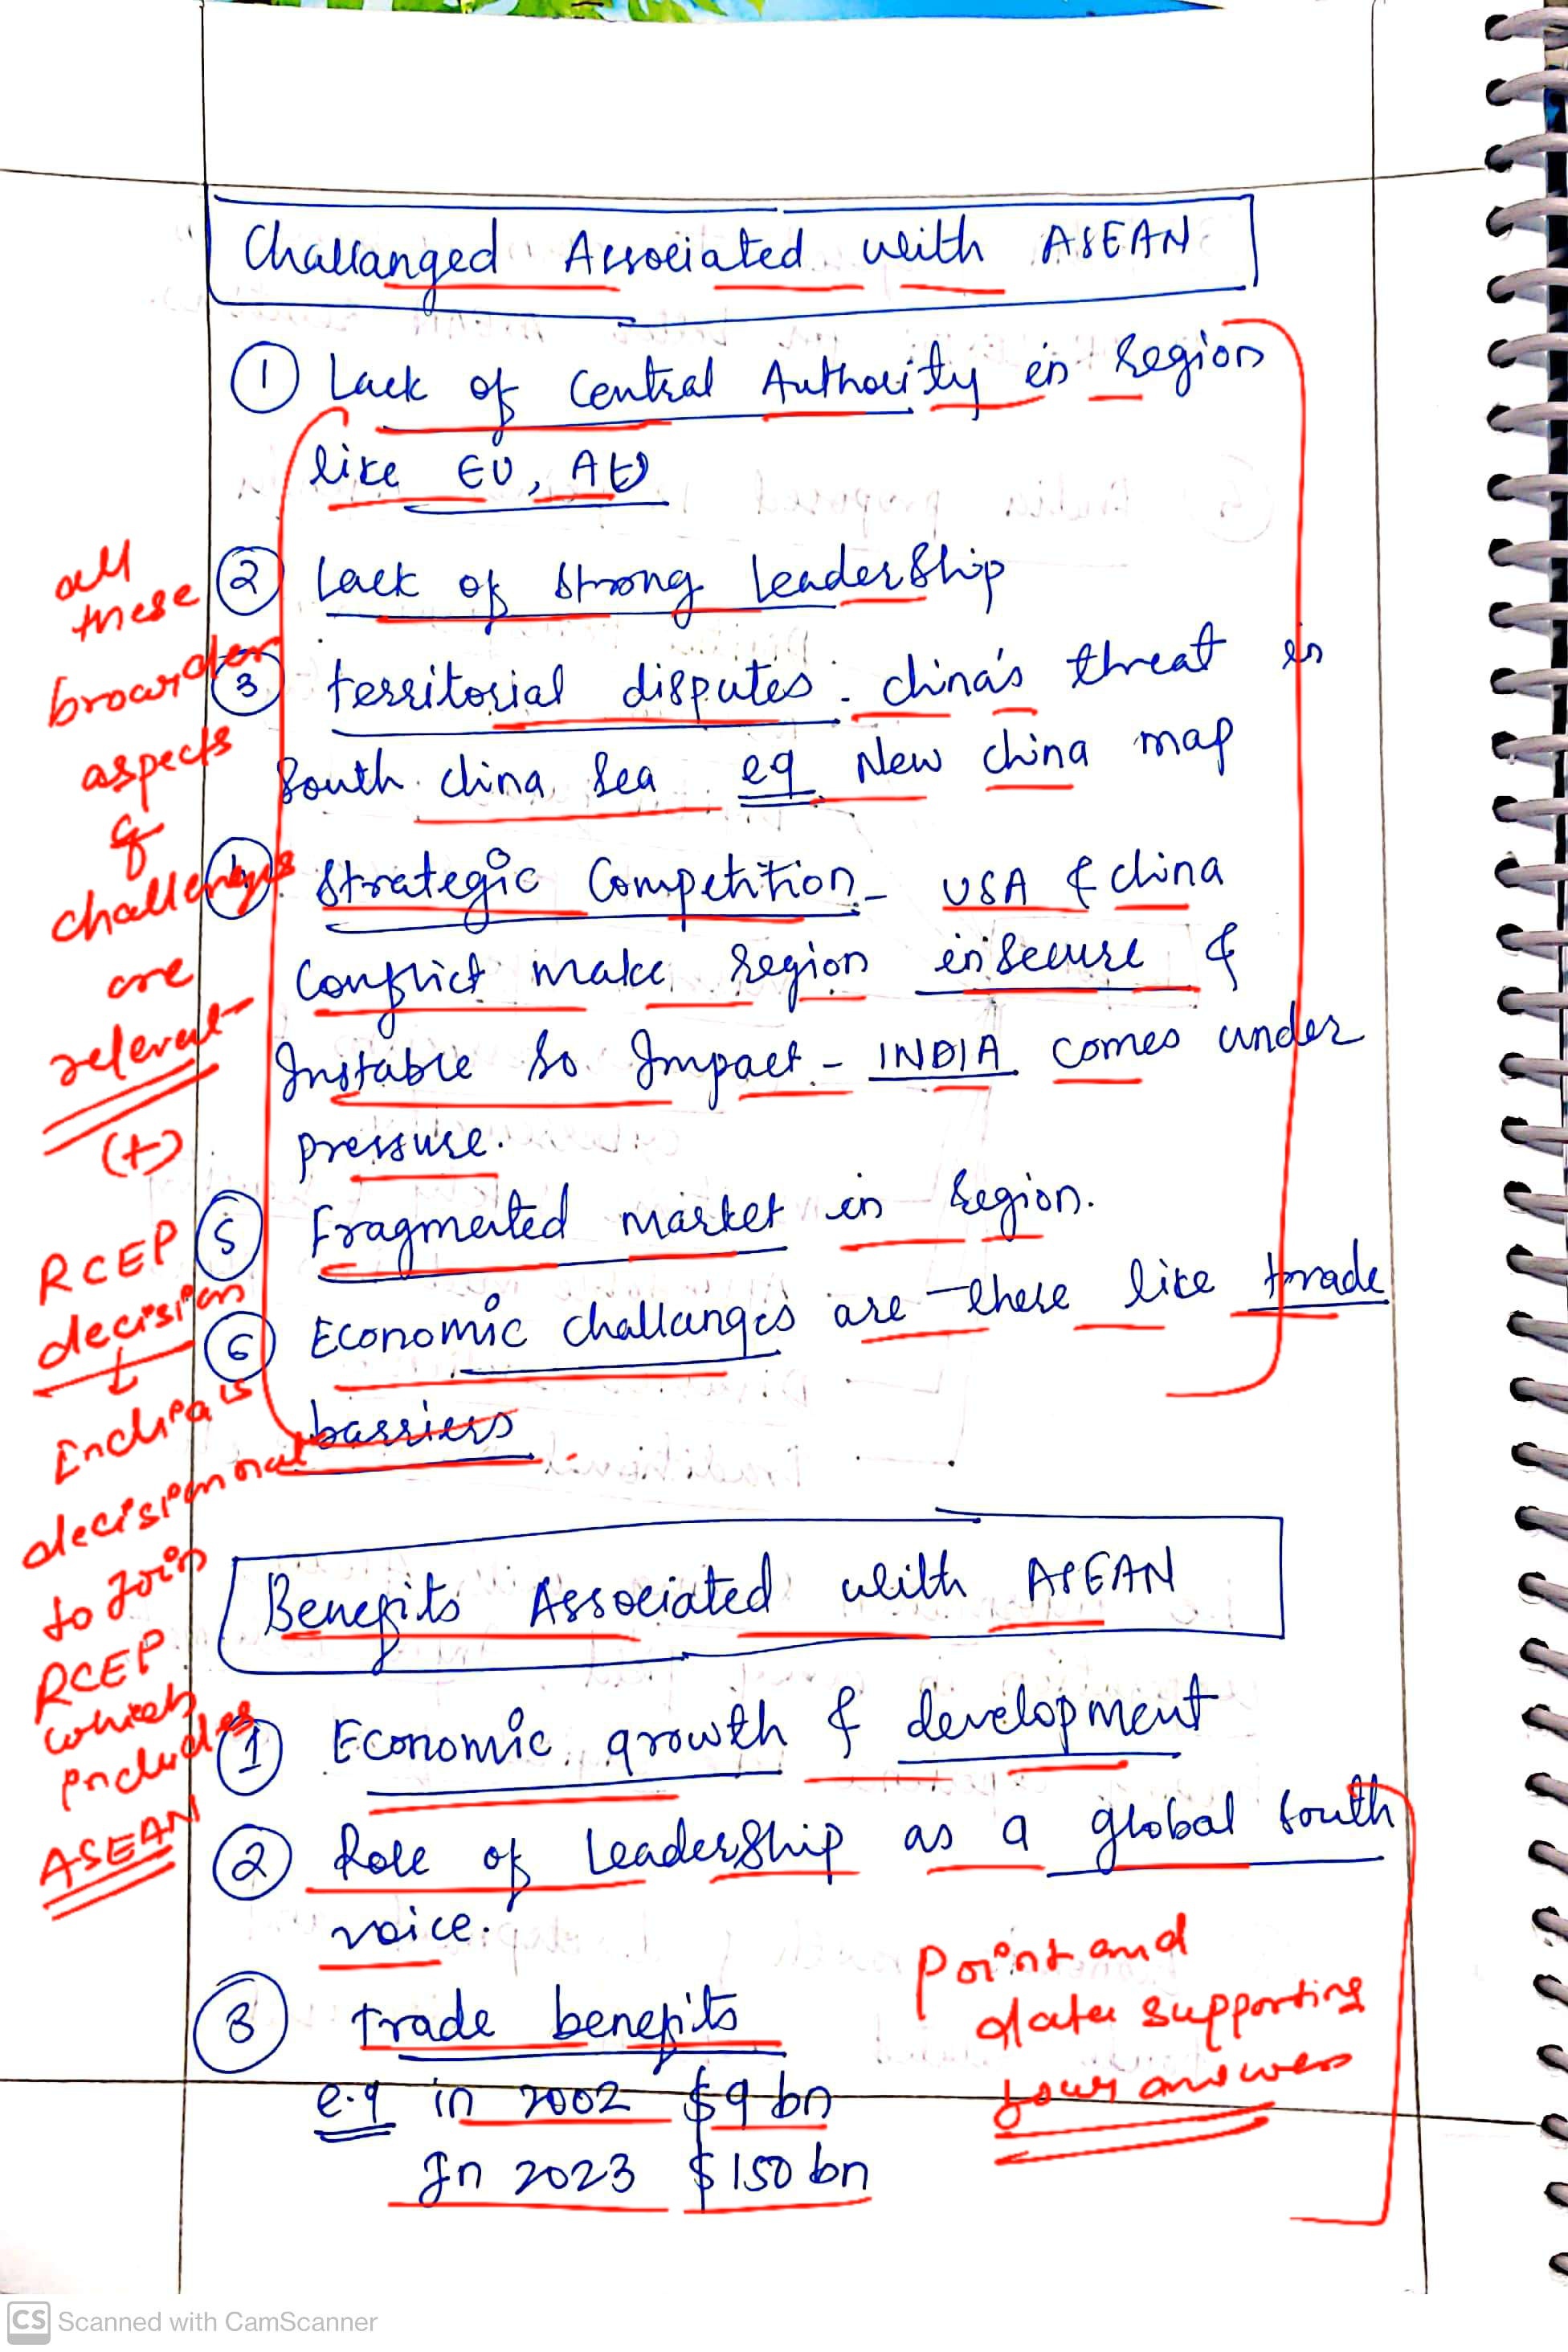 Challanged Associated with ASEAN
① Lack of Central Authority in Region
like EU, AU
② Lack of Strong Leadership
③ territorial disputes - China's threat in
South China Sea eg New China map
④ Strategic Competition - USA & China
Conflict make region insecure &
Instable so Impact - INDIA comes under
pressure.
⑤ Fragmented market in Region.
⑥ Economic challanges are there like trade
barriers
all
these
broarder
aspects
of
challenges
are
relevant
(+)
RCEP
decision
↓
India's
decision not
to Join
RCEP
which
includes
ASEAN
Benefits Associated with ASEAN
① Economic growth & development
② Role of Leadership as a global South
voice.
③ trade benefits
e.g in 2002 $9 bn
In 2023 $150 bn
Point and
data supporting
your answers
CS Scanned with CamScanner